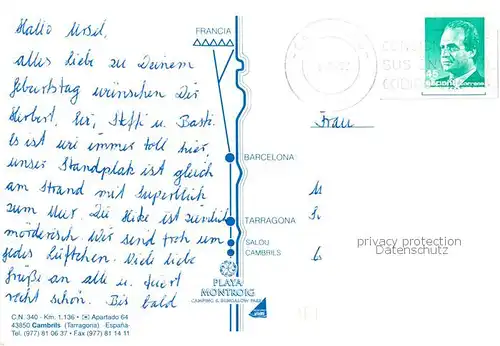 Hallo Ursel,
alles liebe zu Deinem
Geburtstag wünschen Dir
Herbert, Steffi u. Basti.
Es ist wie immer toll hier,
unser Standplatz ist gleich
am Strand mit Superblick
zum Meer. Die Hitze ist ziemlich
mörderisch. Wir sind froh um
jedes Lüftchen. Viele liebe
Grüße an alle u. feiert
recht schön. Bis bald
FRANCIA
BARCELONA
TARRAGONA
SALOU
CAMBRILS
PLAYA
MONTROIG
CAMPING & BUNGALOW PARK
C.N. 340 - Km. 1.136 • Apartado 64
43850 Cambrils (Tarragona) España
Tel. (977) 81 06 37 • Fax (977) 81 14 11
45
Frau
privacy protection
Datenschutz